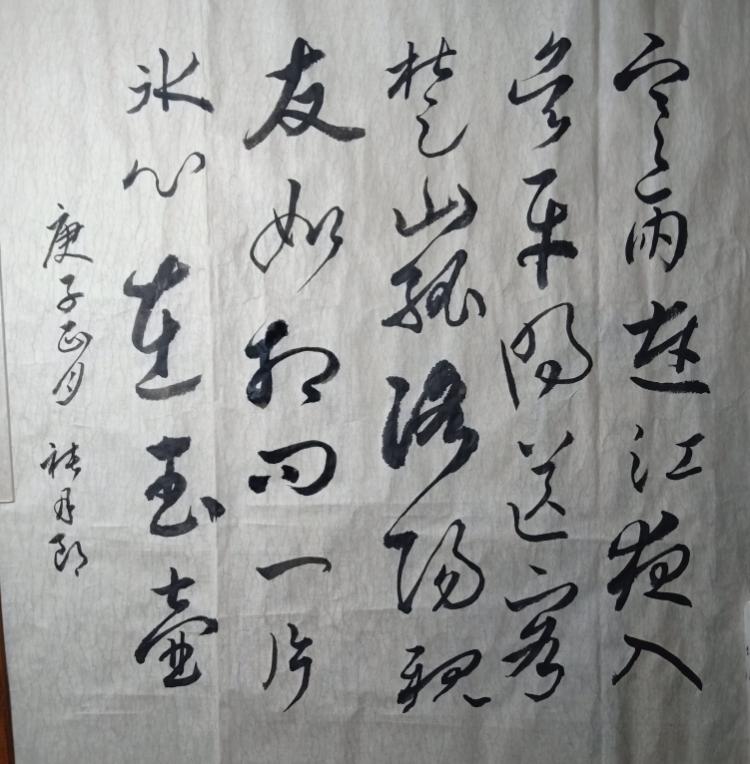 寒雨連江夜入
吴平明送客
楚山孤洛陽親
友如相问一片
冰心在玉壺
庚子正月